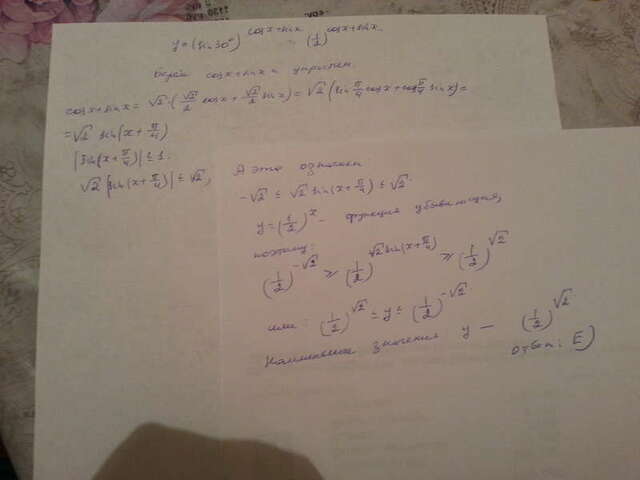 y = (sin30°)^(cosx+sinx) = (1/2)^(cosx+sinx).
Берём cosx+sinx и упростим.
cosx+sinx = √2·(√2/2 cosx + √2/2 sinx) = √2 (sin π/4 cosx + cos π/4 sinx) =
= √2 sin(x+π/4)
|sin(x+π/4)| ≤ 1.
√2 |sin(x+π/4)| ≤ √2,
А это означает
-√2 ≤ √2 sin(x+π/4) ≤ √2.
y = (1/2)^x - функция убывающая,
поэтому:
(1/2)^(-√2) ≥ (1/2)^(√2 sin(x+π/4)) ≥ (1/2)^(√2)
или: (1/2)^(√2) ≤ y ≤ (1/2)^(-√2).
Наименьшее значение y — (1/2)^(√2).
ответ: E)